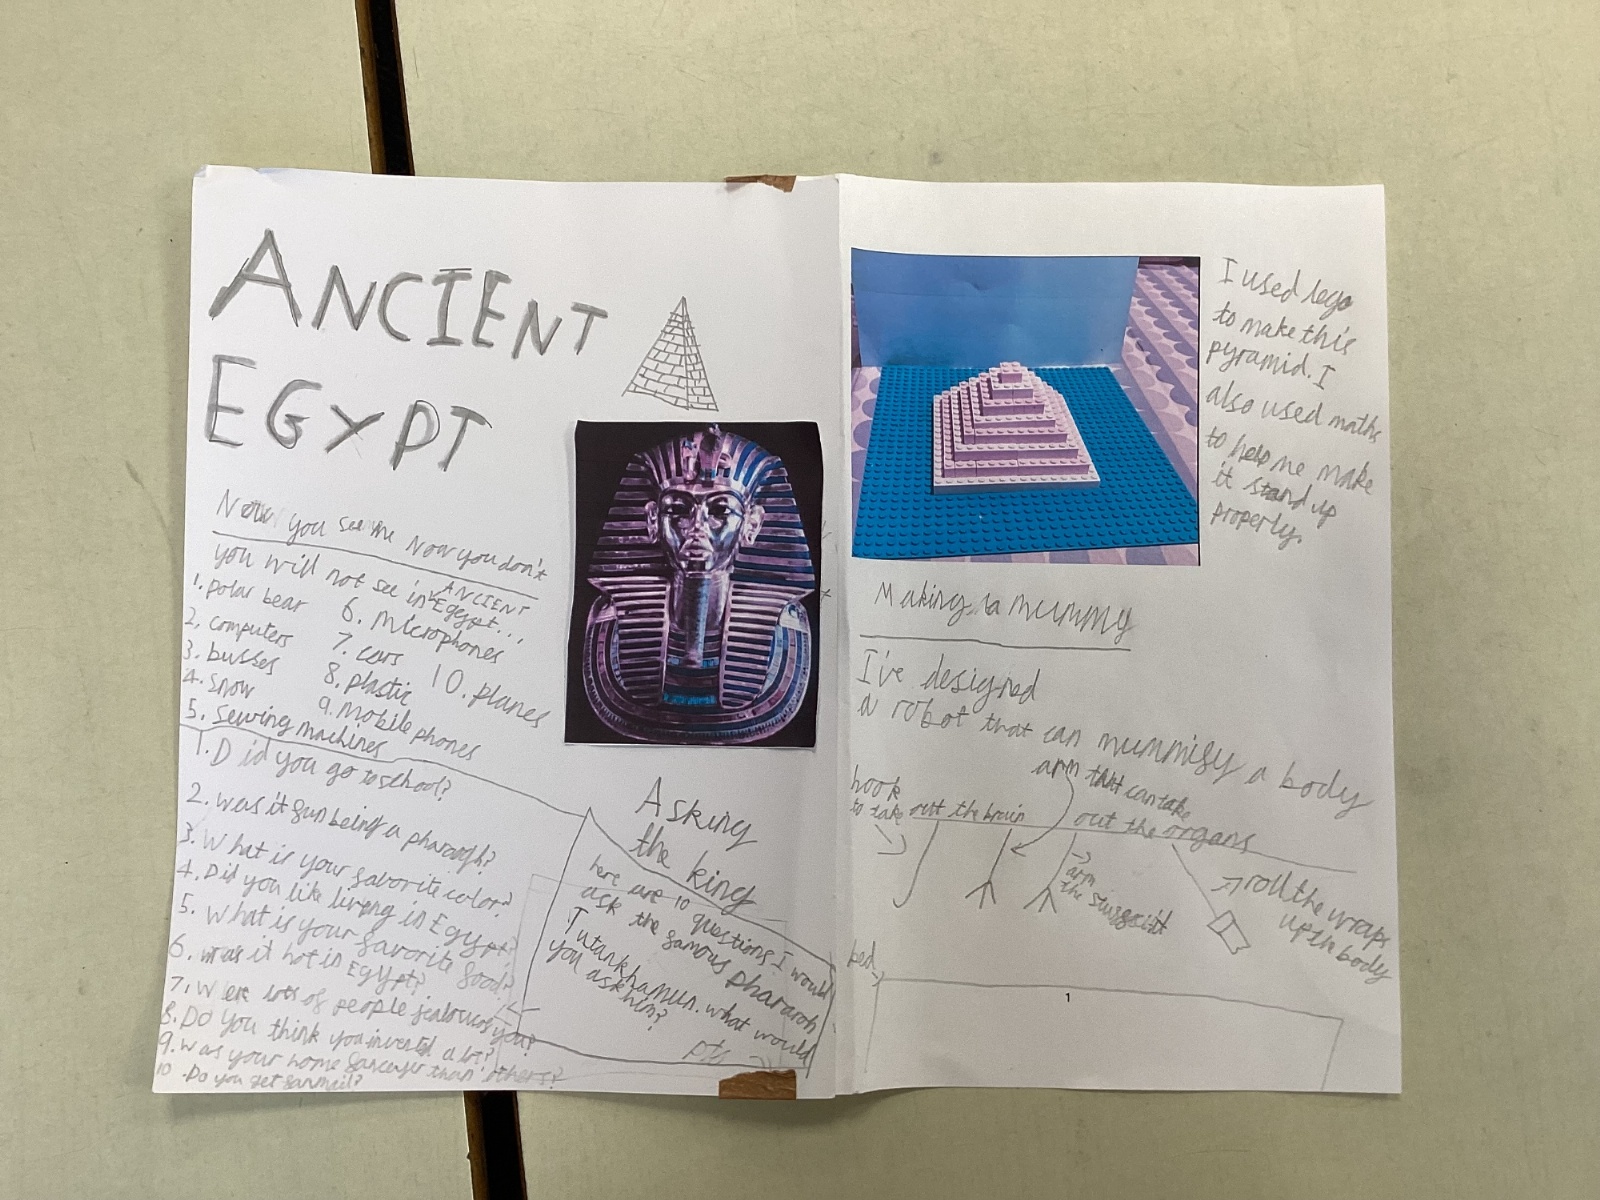 ANCIENT
EGYPT
Now you see me Now you don't
you will not see in ANCIENT
Egypt...
1. polar bear
2. computers
3. busses
4. snow
5. Sewing machines
6. microphones
7. cars
8. plastic
9. mobile phones
10. planes
1. Did you go to school?
2. was it fun being a pharaoh?
3. What is your favorite color?
4. Did you like living in Egypt?
5. What is your favorite food?
6. was it hot in Egypt?
7. Were lots of people jealous of you?
8. Do you think you invented a lot?
9. was your home fancyer than others?
10. Do you get fanmail?
Asking
the king
here are 10 questions I would
ask the famous pharaoh
Tutankhamun. what would
you ask him?
pto
I used lego
to make this
pyramid. I
also used maths
to help me make
it stand up
properly.
Making a mummy
I've designed
a robot that can mummify a body
hook
to take out the brain
arm that can take
out the organs
arm
the
roll the wraps
up the body
bed
1